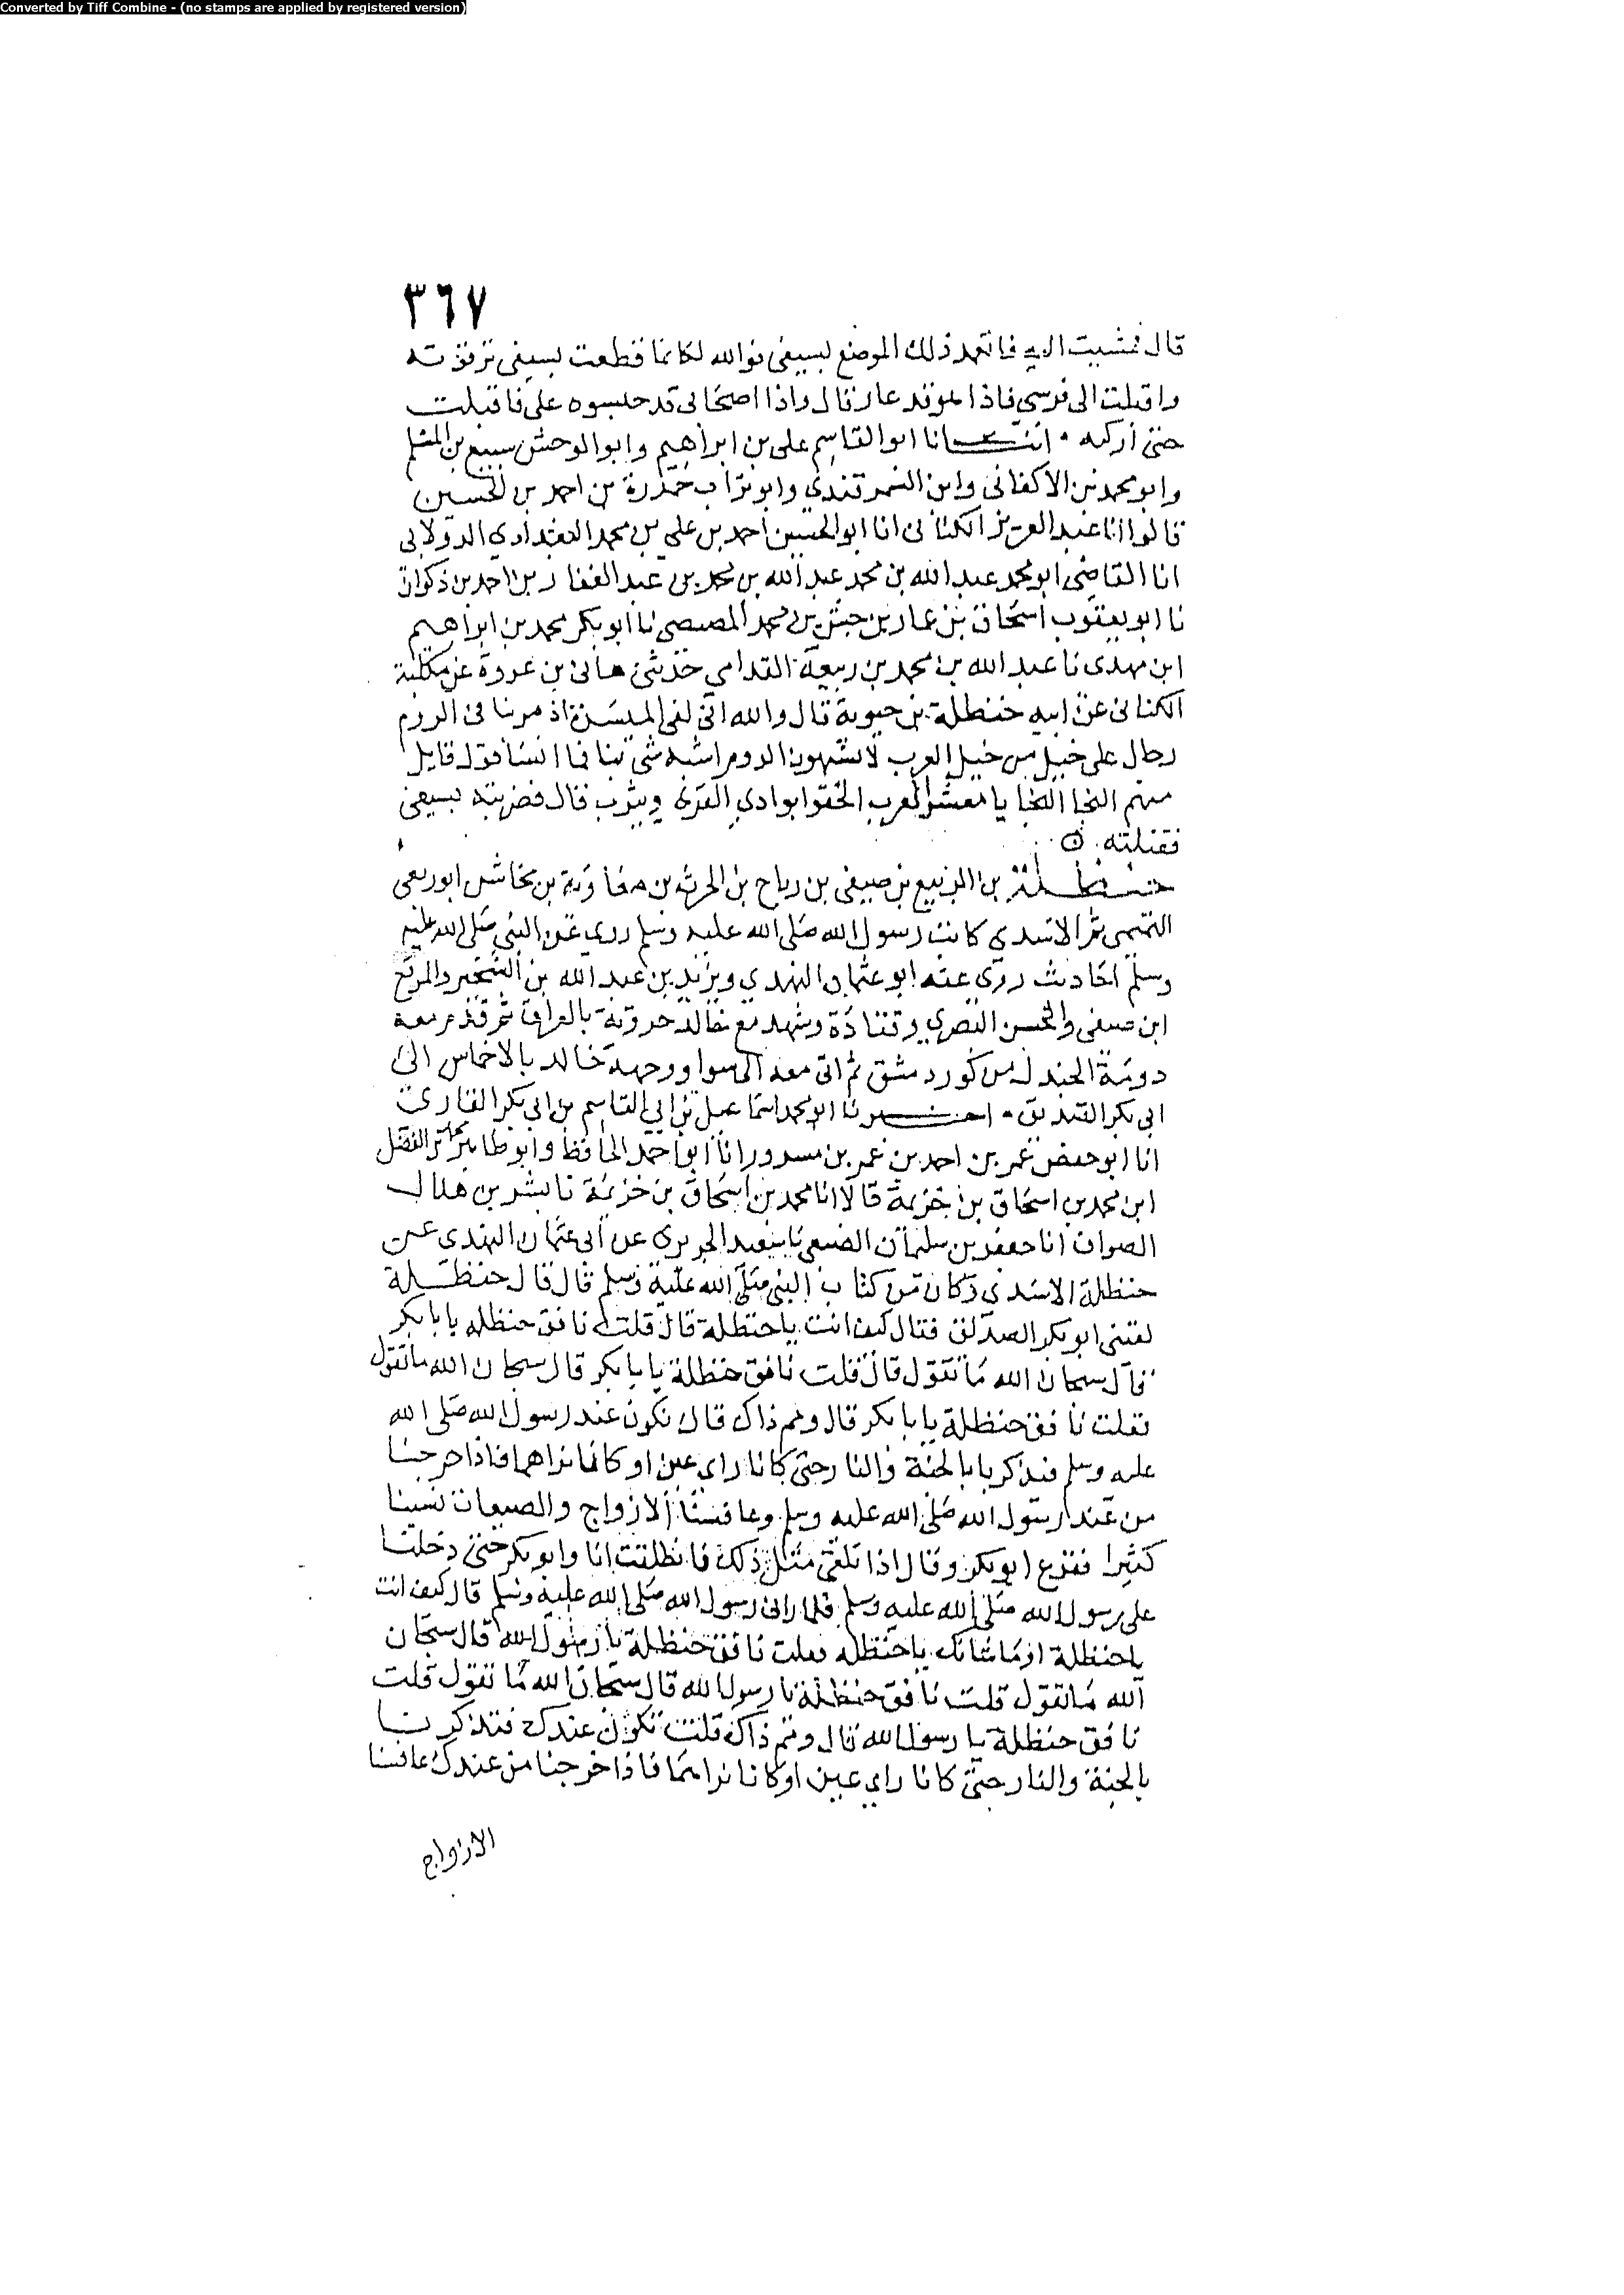 Converted by Tiff Combine - (no stamps are applied by registered version)
٣٦٧
قال فمشيت اليه فاتعمد ذلك الموضع بسيفى فوالله لكانما قطعت بسيفى ترقوته
واقبلت الى فرسي فاذا هو قد عار قال واذا اصحابى قد حبسوه على فاقبلت
حتى أركبه ۰ انبـــانا ابو القاسم على بن ابراهيم وابو الوحش سبيع بن المسلم
وابو محمد بن الاكفانى وابن السمرقندي وابو تراب حيدرة بن احمد بن الحسين
قالوا انا عبد العزيز الكنانى انا ابو الحسين احمد بن على بن محمد البغدادي الدولابى
انا القاضى ابو محمد عبد الله بن محمد عبد الله بن محمد بن عبد الغفار بن احمد بن ذكوان
نا ابو يعقوب اسحاق بن عمار بن حبش بن محمد المصيصى نا ابو بكر محمد بن ابراهيم
ابن مهدى نا عبد الله بن محمد بن ربيعة القدامي حدثنى هانى بن عروة عن مكلبة
الكنانى عن ابيه حنظلة بن حيوية قال والله انى لفى الميسرة اذ مر بنا من الروم
رجال على خيل من خيل العرب لا يشبهون الروم اشبه شى بنا فما انسا قول قايل
منهم النجا النجا يا معشر العرب الحقوا بوادي القرى ويثرب قال فضربته بسيفى
فقتلته
حنـــظلة بن الربيع بن صيفى بن رياح بن الحرث بن معاوية بن مخاشن ابو ربعى
التميمى ثم الاسدي كاتب رسول الله صلى الله عليه وسلم روى عن النبى صلى الله عليه
وسلم احاديث روى عنه ابو عثمان النهدي ويزيد بن عبد الله بن الشخير والمرقع
ابن صيفى والحسن البصري وقتادة وشهد مع خالد حروبه بالعراق ثم قدم معه
دومة الجندل من كور دمشق ثم اتى معه الى سوا ووجهه خالد بالاخماس الى
ابى بكر الصديق ۰ اخبـــرنا ابو محمد اسماعيل بن ابي القاسم بن ابى بكر القارى
انا ابو حفص عمر بن احمد بن عمر بن مسرور انا ابو احمد الحافظ وابو طاهر محمد بن الفضل
ابن محمد بن اسحاق بن خزيمة قالا انا محمد بن اسحاق بن خزيمة نا بشر بن هلال
الصواف انا جعفر بن سليمان الضبعى نا سعيد الجريرى عن ابى عثمان النهدى عن
حنظلة الاسدى وكان من كتاب النبى صلى الله عليه وسلم قال قال حنظلة
لقينى ابو بكر الصديق فقال كيف انت يا حنظلة قال قلت نافق حنظله يابا بكر
قال سبحان الله ما تقول قال قلت نافق حنظلة يابا بكر قال سبحان الله ما تقول
فقلت نافق حنظلة يابا بكر قال ومم ذاك قال نكون عند رسول الله صلى الله
عليه وسلم فيذكرنا بالجنة والنار حتى كانا راي عين او كانا نراهما فاذا خرجنا
من عند رسول الله صلى الله عليه وسلم وعافسنا الازواج والصبيان نسينا
كثيرا ففزع ابو بكر وقال اذا نلقى مثل ذلك فانطلقت انا وابو بكر حتى دخلنا
على رسول الله صلى الله عليه وسلم فلما رانى رسول الله صلى الله عليه وسلم قال كيف انت
يا حنظلة او ما شانك يا حنظله فقلت نافق حنظلة يا رسول الله قال سبحان
الله ما تقول قلت نافق حنظلة يا رسول الله قال سبحان الله ما تقول قلت
نافق حنظلة يا رسول الله قال ومم ذاك قلت نكون عندك فتذكرنا
بالجنة والنار حتى كانا راي عين او كانا نراهما فاذا خرجنا من عندك عافسنا
الازواج